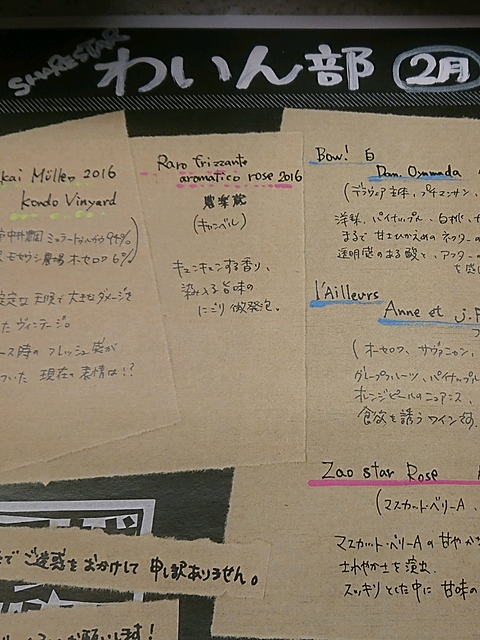 SHARE STAR
わいん部 2月
kai Müller 2016
Kondo Vinyard
ミュラートゥルガウ94%
モセウシ農場 オーセロワ 6%)
天候で大きなダメージを
たヴィンテージ。
ース時のフレッシュ感が
ついた 現在の表情は!?
Raro frizzante
aromatico rose 2016
農楽蔵
(キャンベル)
キュンキュンする香り、
染み入る旨味の
にごり微発泡。
Bow! 白
Dan. Osumada
(デラウェア主体、
洋梨、パイナップル、白桃、
まるで甘さひかえめのネクター
透明感のある酸と、アフター
を感じ
l'Ailleurs
Anne et J.F
(オーセロワ、サヴァニャン、
グレープフルーツ、パイナップル
オレンジピールのニュアンス、
食欲を誘うワインです。
Zao star Rose
(マスカット・ベリーA、
マスカット・ベリーAの甘やか
さわやかさを演出。
スッキリとした中に 甘味の
で ご迷惑をおかけして 申し訳ありません。
お願いします!